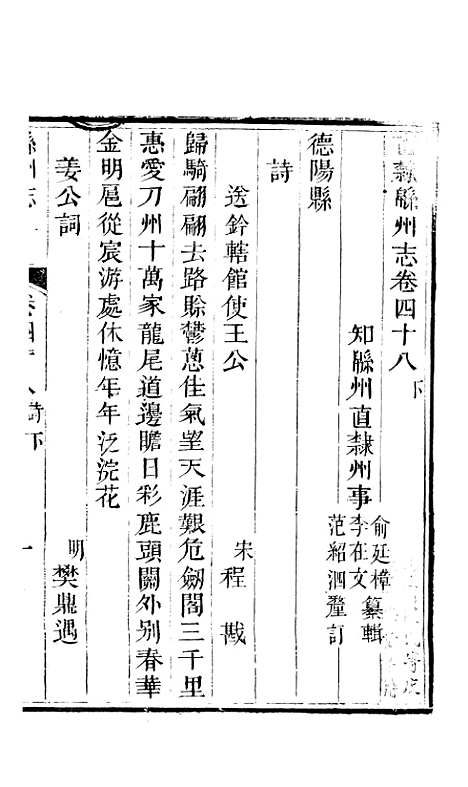 直隸緜州志卷四十八下
知緜州直隸州事
俞廷樟纂輯
李在文
范紹泗釐訂
德陽縣
詩
送鈐轄館使王公
宋程戡
歸騎翩翩去路賒鬱葱佳氣望天涯艱危劒閣三千里
惠愛刀州十萬家龍尾道邊瞻日彩鹿頭關外別春華
金明扈從宸游處休憶年年泛浣花
姜公詞
明樊鼎遇
緜州志
卷四十八詩下
一